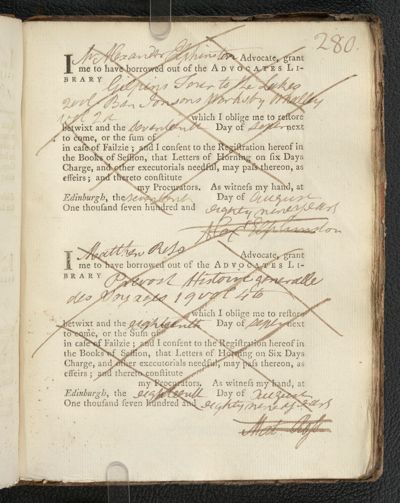 280.
I Mr Alexander Elphinston Advocate, grant
me to have borrowed out of the ADVOCATES LI-
BRARY Gilpins Tour to the Lakes
2 vol Ben Jonsons Works by Whalley
vol 2d which I oblige me to restore
betwixt and the seventeenth Day of Septr next
to come, or the sum of
in case of Failzie ; and I consent to the Registration hereof in
the Books of Session, that Letters of Horning on six Days
Charge, and other executorials needful, may pass thereon, as
effeirs ; and thereto constitute
my Procurators. As witness my hand, at
Edinburgh, the seventeenth Day of August
One thousand seven hundred and eighty nine years
Alexr Elphinston
I Matthew Ross Advocate, grant
me to have borrowed out of the ADVOCATES LI-
BRARY Prevost Histoire generalle
des Voyages 19 vol 4to
which I oblige me to restore
betwixt and the eighteenth Day of Septr next
to come, or the Sum of
in case of Failzie ; and I consent to the Registration hereof in
the Books of Session, that Letters of Horning on Six Days
Charge, and other executorials needful, may pass thereon, as
effeirs ; and thereto constitute
my Procurators. As witness my hand, at
Edinburgh, the eighteenth Day of August
One thousand seven hundred and eighty nine years
Mat. Ross